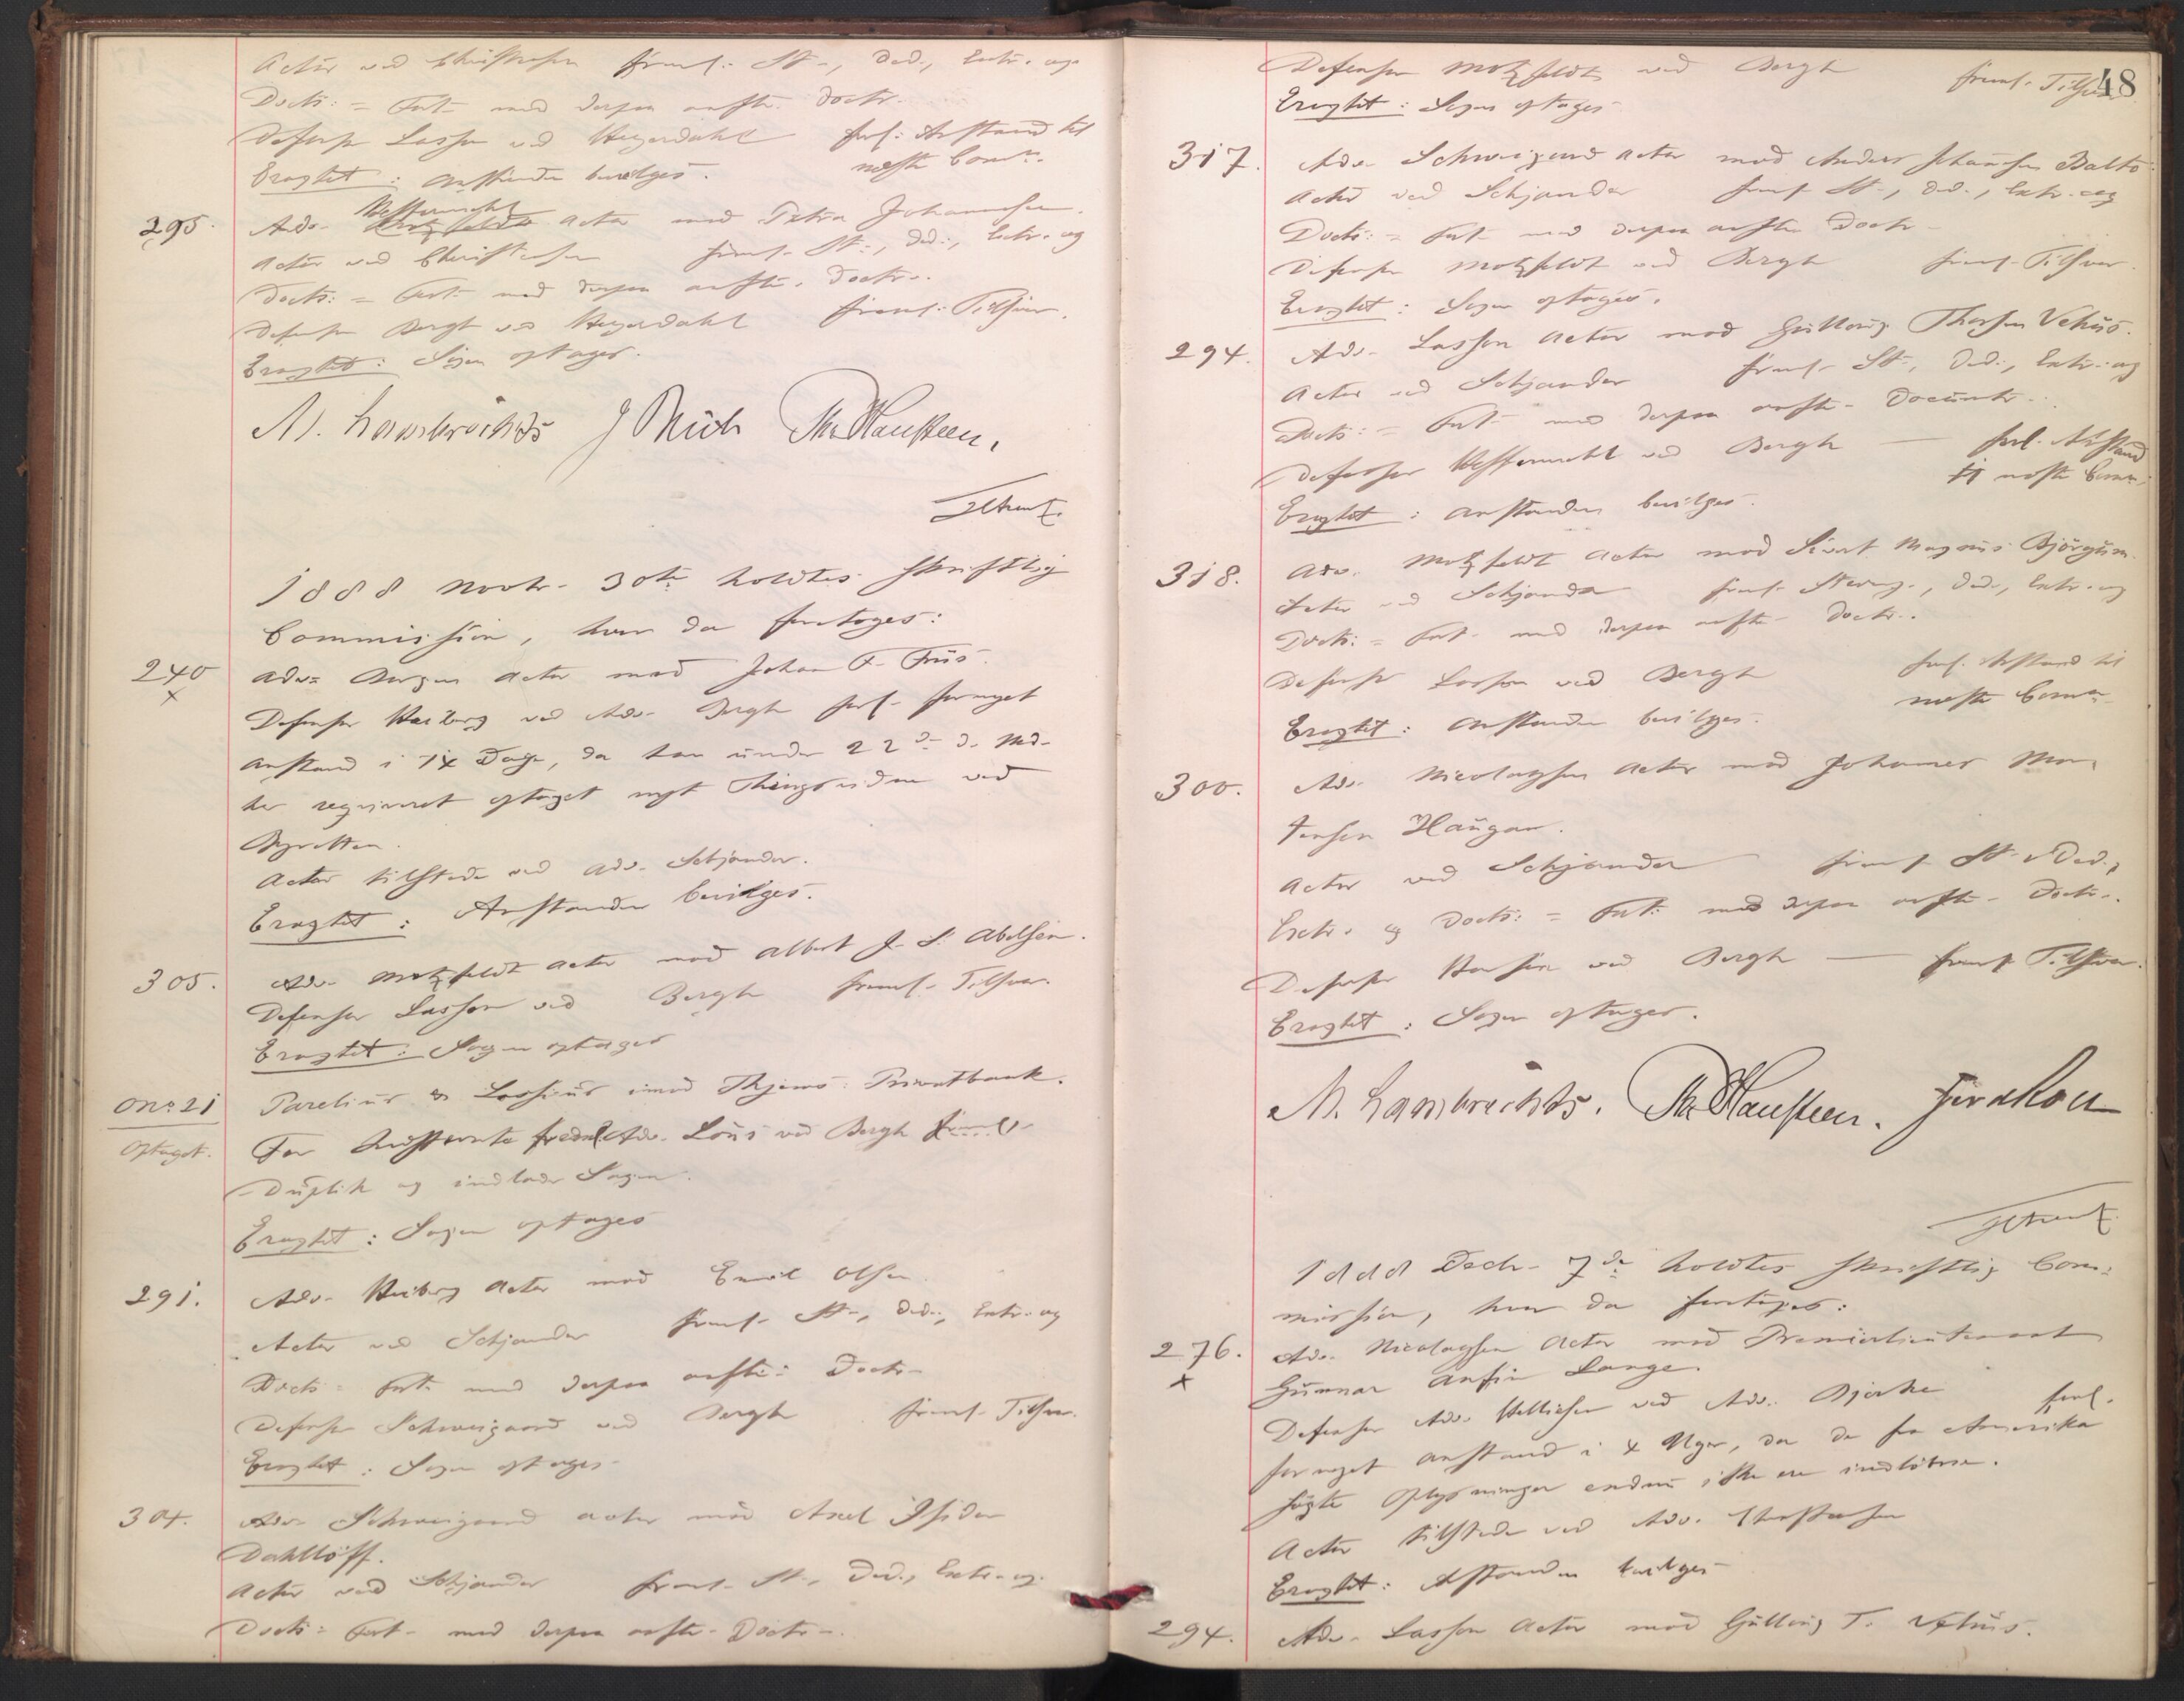 Actor ved Christensen freml: St-, Ded., Extr. og
Docts: = Fort- med derpaa anfte. Doctr-
Defensor Lasson ved Heyerdahl forl: Anstand til
Eragtet: Anstanden bevilges. næste Comn-
295. Adv. Hesselberg actor mod Petra Johannesen.
Actor ved Christensen freml- St-, Ded-, Extr. og
Docts: = Fort- med derpaa anfte. Doctr-.
Defensor Bergh ved Heyerdahl freml: Tilsvar.
Eragtet: Sagen optages.
M. Lambrechts Th. Hansteen.
1888 Novbr- 30te holdtes skriftlig
Commission, hvor da foretoges:
240 Adv= Bergen Actor mod Johan F. Friis.
x
Defensor Heiberg ved Adv- Bergh forl- fornyet
Anstand i 14 Dage, da han under 22de d. Md-
har requireret optaget nyt Thingsvidne ved
Byretten.
Actor tilstede ved Adv. Schjander.
Eragtet: Anstanden bevilges.
305. Adv- Motzfeldt Actor mod Albert J. S. Abelsen.
Defensor Lasson ved Bergh freml- Tilsvar.
Eragtet: Sagen optages
Ono 21 Parelius & Lossius imod Thjems Privatbank.
Optaget. For Indstevnte fredml Adv. Louis ved Bergh
Duplik og indlader Sagen.
Eragtet: Sagen optages
291. Adv- Heiberg Actor mod Emil Olsen
Actor ved Schjander freml- St-, Ded-, Extr. og
Docts = Fort- med derpaa anfte: Doctr-
Defensor Schweigaard ved Bergh freml- Tilsvar.
Eragtet: Sagen optages-
304. Adv- Schweigaard actor mod Axel Isidor
Dahllöff.
Actor ved Schjander freml- St-, Ded., Extr. og.
Docts = Fort- med derpaa anfte- Doctr-.
48
Defensor Motzfeldt ved Bergh freml- Tilsvar
Eragtet: Sagen optages-
317. Adv- Schweigaard actor mod Anders Johansen Balto
Actor ved Schjander freml- St-, Ded., Extr. og
Docts: = Fort- med derpaa anfte Doctr-
Defensor Motzfeldt ved Bergh freml- Tilsvar.
Eragtet: Sagen optages.
294. Adv- Lasson Actor mod Gulloug Thorsen Vehus.
Actor ved Schjander freml- St-, Ded-, Extr- og
Docts: = Fort- med derpaa anfte- Documtr-.
Defensor ved Bergh — forl- Anstand
til næste Comn-
Eragtet: Anstanden bevilges.
318. Adv. Motzfeldt Actor mod Sivert Magnus Bjørgum.
Actor ved Schjander freml- Stevng-, Ded-, Extr. og
Docts: = Fort- med derpaa anfte- Doctr-.
Defensor Lasson ved Bergh forl. Anstand til
Eragtet: Anstanden bevilges. næste Comn-
300. Adv. Nicolaysen Actor mod Johannes Mor-
tensen Haugan.
Actor ved Schjander freml- St- Ded.,
Extr. og Docts: = Fort: med derpaa anfte- Doctr-.
Defensor ved Bergh — freml- Tilsvar.
Eragtet: Sagen optages.
M. Lambrechts. Th. Hansteen.
1888 Decb- 7de holdtes skriftlig Com-
mission, hvor da foretoges:
276. Adv. Nicolaysen Actor mod Premierlieutenant
x Gunnar Anfin Lange.
Defensor Adv. Helliesen ved Adv. Bjerke forl.
fornyet Anstand i 4 Uger, da de fra Amerika
søgte Oplysninger endnu ikke ere indløbne.
Actor tilstede ved Adv. Christensen
Eragtet: Anstanden bevilges-
294. Adv- Lasson Actor mod Gulloug T. Vehus.